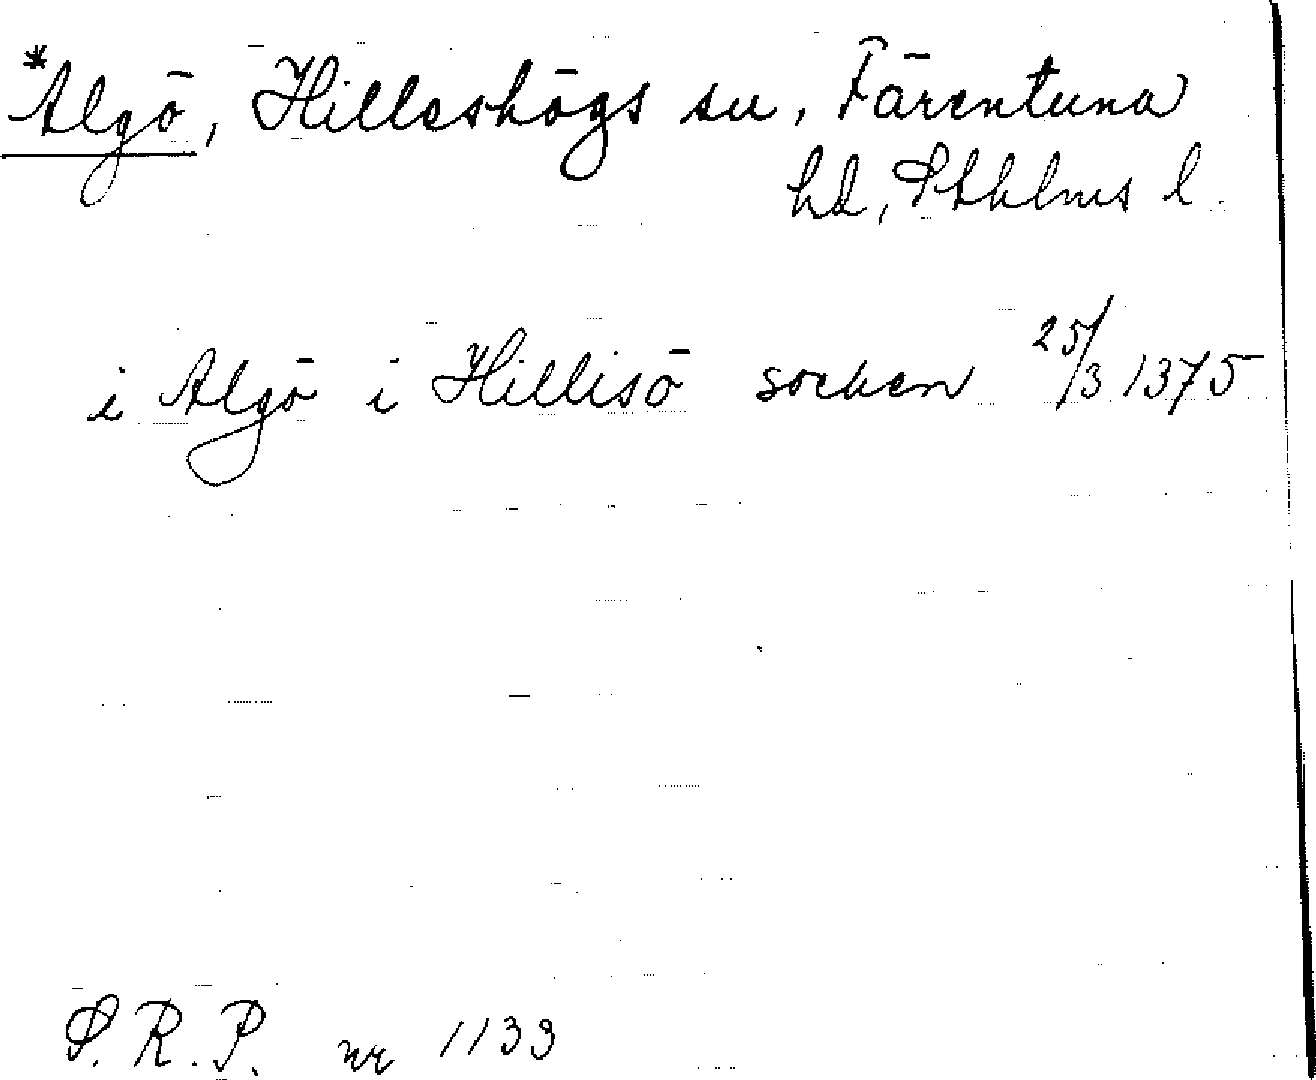 *Algö, Hilleshögs sn, Färentuna
hd, Sthlms l.
i Algö i Hillisö socken 25/3 1375
S.R.P. nr 1133